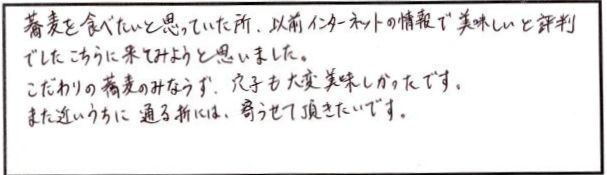 蕎麦を食べたいと思っていた所、以前インターネットの情報で美味しいと評判
でしたこちらに来てみようと思いました。
こだわりの蕎麦のみならず、穴子も大変美味しかったです。
また近いうちに通る折には、寄らせて頂きたいです。